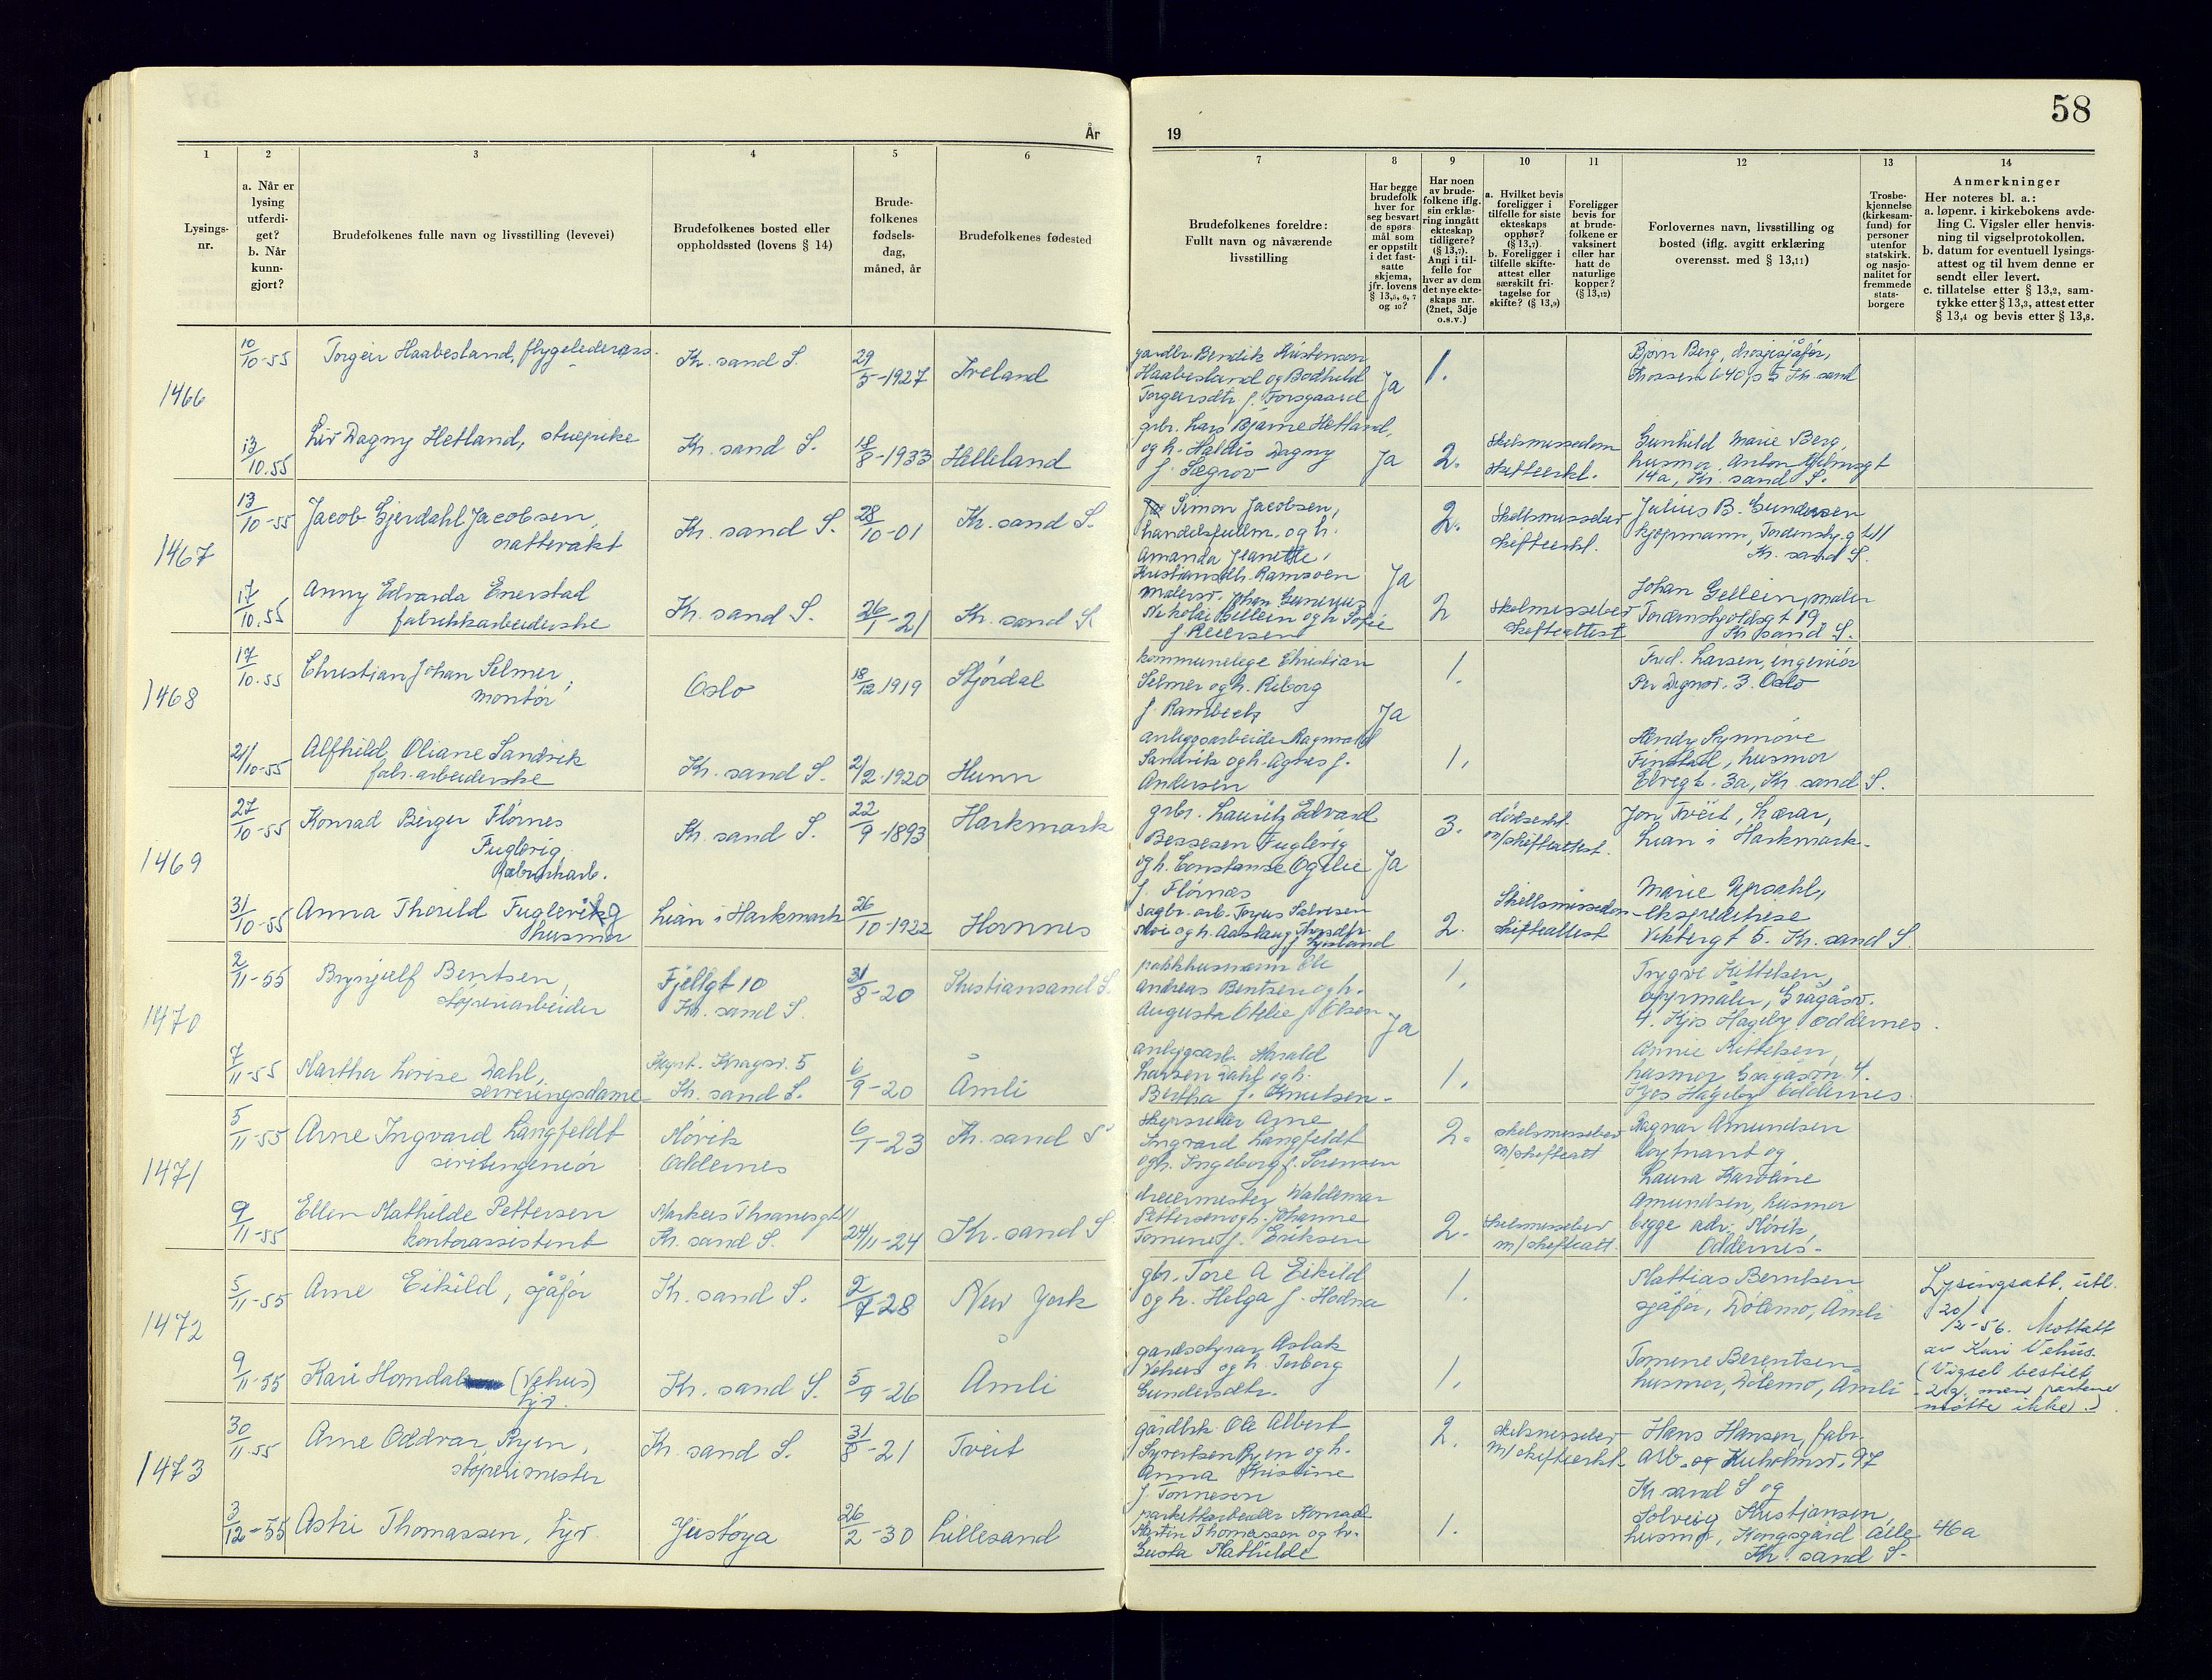 58
År
19
1
2
3
4
5
6
7
8
9
10
11
12
13
14
Lysings-
nr.
a. Når er
lysing
utferdi-
get?
b. Når
kunn-
gjort?
Brudefolkenes fulle navn og livsstilling (levevei)
Brudefolkenes bosted eller
oppholdssted (lovens § 14)
Brude-
folkenes
fødsels-
dag,
måned, år
Brudefolkenes fødested
Brudefolkenes foreldre:
Fullt navn og nåværende
livsstilling
Har begge
brudefolk
hver for
seg besvart
de spørs-
mål som
er oppstilt
i det fast-
satte
skjema,
jfr. lovens
§ 13,5, 6, 7
og 10?
Har noen
av brude-
folkene iflg.
sin erklæ-
ring inngått
ekteskap
tidligere?
(§ 13,7).
Angi i til-
felle for
hver av dem
det nye ekte-
skaps nr.
(2net, 3dje
o.s.v.)
a. Hvilket bevis
foreligger i
tilfelle for siste
ekteskaps
opphør?
(§ 13,7).
b. Foreligger i
tilfelle skifte-
attest eller
særskilt fri-
tagelse for
skifte? (§ 13,9)
Foreligger
bevis for
at brude-
folkene er
vaksinert
eller har
hatt de
naturlige
kopper?
(§ 13,12)
Forlovernes navn, livsstilling og
bosted (iflg. avgitt erklæring
overensst. med § 13,11)
Trosbe-
kjennelse
(kirkesam-
fund) for
personer
utenfor
statskirk.
og nasjo-
nalitet for
fremmede
stats-
borgere
Anmerkninger
Her noteres bl. a.:
a. løpenr. i kirkebokens avde-
ling C. Vigsler eller henvis-
ning til vigselprotokollen.
b. datum for eventuell lysings-
attest og til hvem denne er
sendt eller levert.
c. tillatelse etter § 13,2, sam-
tykke etter § 13,3, attest etter
§ 13,4 og bevis etter § 13,8.
1466
10/10-55
Torgeir Haabesland, flygelederass.
Kr. sand S.
29/5-1927
Iveland
gardbr. Bendik Kristensen
Haabesland og Bodhild
Torgersdtr. f. Forsgaard
Ja
1.
Bjørn Berg, drosjesjåfør,
Kr. sand
13/10.55
Liv Dagny Hetland, stuepike
Kr. sand S.
18/8-1933
Helleland
gbr. Lars Bjarne Hetland,
og h. Haldis Dagny
f. Sægrov
Ja
2.
Skilsmissedom
skifteerkl.
Gunhild Marie Berg,
husmor, Anton
14a, Kr. sand S.
1467
13/10-55
Jacob Gjerdahl Jacobsen,
nattevakt
Kr. sand S.
28/10-01
Kr. sand S.
Simon Jacobsen,
handelsfullm. og h.
Amanda Jeanette,
Kristiansdtr. Ramsøen
Ja
2.
Skilsmissebev
skifteerkl.
Julius B. Gundersen
kjøpmann, Tordenskj. g
Kr. sand S.
17/10.55
Anny Edvarda Enerstad
fabrikkarbeiderske
Kr. sand S.
26/1-21
Kr. sand S
malersv. Johan Gunerius
Nikolai Gellein og h. Sofie
f Reiersen
2
Skilmissebev
skifteattest
Johan Gellein, maler
Tordenskjoldsgt 19,
Kr sand S.
1468
17/10.55
Christian Johan Selmer,
montør
Oslo
18/12 1919
Stjørdal
kommunelege Christian
Selmer og h. Riborg
f. Rambech
Ja
1.
Fred. Larsen, ingeniør
Per Døgnsv. 3. Oslo
21/10-55
Alfhild Oliane Sandvik
fabr. arbeiderske
Kr. sand S.
2/2-1920
Hunn
anleggsarbeider Ragnvald
Sandvik og h. Agnes f.
Andersen
1.
Synnøve
Finstad, husmor
Elvegt. 3a, Kr. sand S.
1469
27/10-55
Konrad Birger Flørnes
Fuglevig
fabrikkarb.
Kr. sand S.
22/9-1893
Harkmark
gbr. Lauritz Edvard
Bessesen Fuglevig
og h. Constanse Otilie
f. Flørnæs
Ja
3.
dødserkl.
m/skifteattest.
Jon Tveit, lærar,
Lian i Harkmark.
31/10-55
Anna Thorild Fuglevig
husmor
Lian i Harkmark
26/10-1922
Hornnes
Sagbr. arb. Torjus Salvesen
Moi og h. Aaslaug
2.
Skillsmissedom
skifteattest
Marie Updahl,
ekspeditrise
Vestergt 5. Kr. sand S.
1470
2/11-55
Brynjulf Bentsen,
støperiarbeider
Fjellgt 10
Kr. sand S.
31/8-20
Kristiansand S.
pakkhusmann Ole
Andreas Bentsen og h.
Augusta Otelie f Olsen
Ja
1.
Trygve Kittelsen,
oppmåler, Grågåsv.
4. Kjos Hageby. Oddernes.
7/11-55
Martha Lovise Dahl,
serveringsdame
Kragsv. 5
Kr. sand S.
6/9-20
Åmli
anleggsarb. Harald
Larsen Dahl og h.
Bertha f. Knutsen.
1.
Annie Kittelsen,
husmor Grågåsvn. 4.
Kjos Hageby Oddernes.
1471
5/11-55
Arne Ingvard Langfeldt
sivilingeniør
Mørik
Oddernes
6/1-23
Kr. sand S
Skipsreder Arne
Ingvard Langfeldt
og h. Ingeborg f. Sørensen
2.
skilsmissebev
m/skifteatt
Ragnar Amundsen
løytnant og
Laura Karoline
Amundsen, husmor
begge adr. Mørik,
Oddernes.
9/11-55
Ellen Mathilde Pettersen
kontorassistent
Markus Thranesgt 11
Kr. sand S.
24/11-24
Kr. sand S
dreiermester Waldemar
Pettersen og h. Johanne
Tomine f. Eriksen
2.
skilsmissebev
m/skifteatt.
1472
5/11-55
Arne Eikild, sjåfør
Kr. sand S.
2/7-28
New York
gbr. Tore A Eikild
og h. Helga f. Hodna
1.
Mattias Berntsen
sjåfør, Dølemo, Åmli
Lysingsatt. utl.
20/2-56. Mottatt
av Kari Vehus.
(Vigsel bestilt
men partene
møtte ikke).
9/11-55
Kari Homdal (Vehus)
hjv.
Kr. sand S.
5/9-26
Åmli
gardsstyrar Aslak
Vehus og h. Torborg
Gundersdtr.
1.
Tomine Berentsen
husmor, Dølemo, Åmli
1473
30/11.55
Arne Oddvar Ryen,
støperimester
Kr. sand S.
31/8-21
Tveit
gårdbrk Ole Albert
Syvertsen Ryen og h.
Anna Kristine
f. Tønnesen
2.
skilsmissebev
m/skifteerkl.
Hans Hansen, fabr.
arb. og Kuholmsv. 97
Kr sand S og
Solveig Kristiansen,
husmor, Kongsgård Alle 46a
Kr. sand S.
3/12-55
Astri Thomassen, hjv.
Justøya
26/2-30
Lillesand
parkettarbeider Konrad
Martin Thomassen og h.
Gusta Mathilde
1.